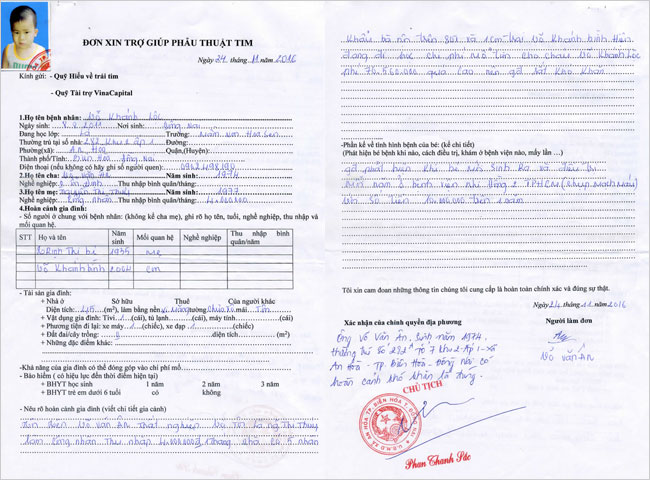 ĐƠN XIN TRỢ GIÚP PHẪU THUẬT TIM
Ngày 24. tháng 11. năm 2016
Kính gửi: - Quỹ Hiểu về trái tim
- Quỹ Tài trợ VinaCapital
1.Họ tên bệnh nhân: Võ Khánh Lộc
Ngày sinh: 8.8.2011 Nơi sinh: Đồng Nai
Đang học lớp: Trường: Mần non Hoa Sen
Thường trú tại số nhà: Đường:
Phường(xã): An Hoà Quận,(Huyện):
Thành phố/Tỉnh: Biên Hoà Đồng Nai
Điện thoại (nếu không có hãy ghi số người quen):
2.Họ tên cha: Võ Văn Ân Năm sinh: 1974
Nghề nghiệp: Thu nhập bình quân/tháng:
3.Họ tên mẹ: Năm sinh: 1977
Nghề nghiệp: Công nhân Thu nhập bình quân/tháng: 4.000.000
4.Hoàn cảnh gia đình:
- Số người ở chung với bệnh nhân: (không kể cha mẹ), ghi rõ họ tên, tuổi, nghề nghiệp, thu nhập và
mối quan hệ.
STT Họ và tên Năm sinh Mối quan hệ Nghề nghiệp Thu nhập bình quân/năm
Thị bé 1935 mẹ
Võ Khánh bình
- Tài sản gia đình:
+ Nhà ở Sở hữu Thuê Của người khác
Diện tích: (m²), làm bằng nền tường mái Tôn
+ Vật dụng gia đình: Tivi (cái), tủ lạnh (cái), máy tính (cái)
+ Phương tiện đi lại: xe máy 1 (chiếc), xe đạp 1 (chiếc)
+ Đất đai/cây trồng: diện tích (m²)
-Khả năng của gia đình có thể đóng góp vào chi phí mổ.
- Bảo hiểm ( có hiệu lực đến thời điểm hiện tại)
+ BHYT học sinh 1 năm 2 năm 3 năm
+ BHYT trẻ em dưới 6 tuổi có không
- Nêu rõ hoàn cảnh gia đình (viết chi tiết gia cảnh)
Võ Văn Ân thất nghiệp
làm công nhân thu nhập 4.000.000đ tháng nhà có 5 nhân
khẩu bà nội trên 80t và 1 em trai Võ Khánh bình Hiện
đang đi học chi phí mổ tim cho cháu Võ Khánh Lộc
phí 76.560.000 quá cao nên gđ rất khó khăn
-Phần kể về tình hình bệnh của bé: (kể chi tiết)
(Phát hiện bé bệnh khi nào, cách điều trị, khám ở bệnh viện nào, mấy lần …)
gđ phát hiện khi bé mới sinh ra và điều trị
mỗi năm ở bệnh viện nhi đồng 2 TPHCM
số tiền 10.000.000 trên 1 năm
Tôi xin cam đoan những thông tin chúng tôi cung cấp là hoàn toàn chính xác và đúng sự thật.
Ngày 24 tháng 11 năm 2016
Xác nhận của chính quyền địa phương
Người làm đơn
Ông Võ Văn Ân, Sinh năm 1974,
thường trú số tổ 7 khu 2 Ấp 1 - xã
An Hòa - TP. Biên Hòa - Đồng Nai có
hoàn cảnh khó khăn là đúng.
Võ Văn Ân
CHỦ TỊCH
Phan Thanh Sắc